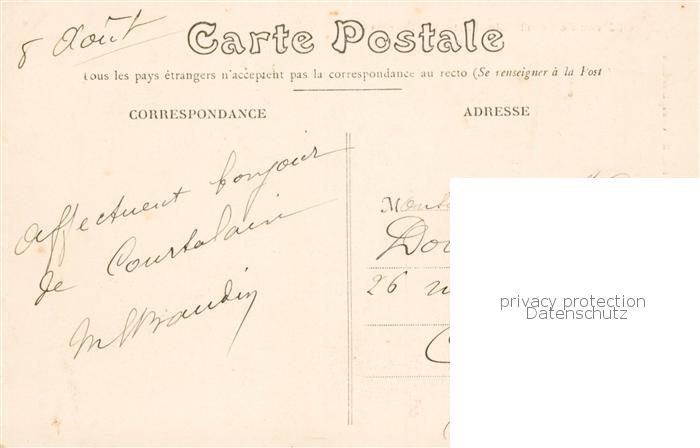 8 Août
Carte Postale
tous les pays étrangers n'acceptent pas la correspondance au recto (Se renseigner à la Post
CORRESPONDANCE
ADRESSE
affectueux bonjour
de Courtalain
M
Dou
26
privacy protection
Datenschutz